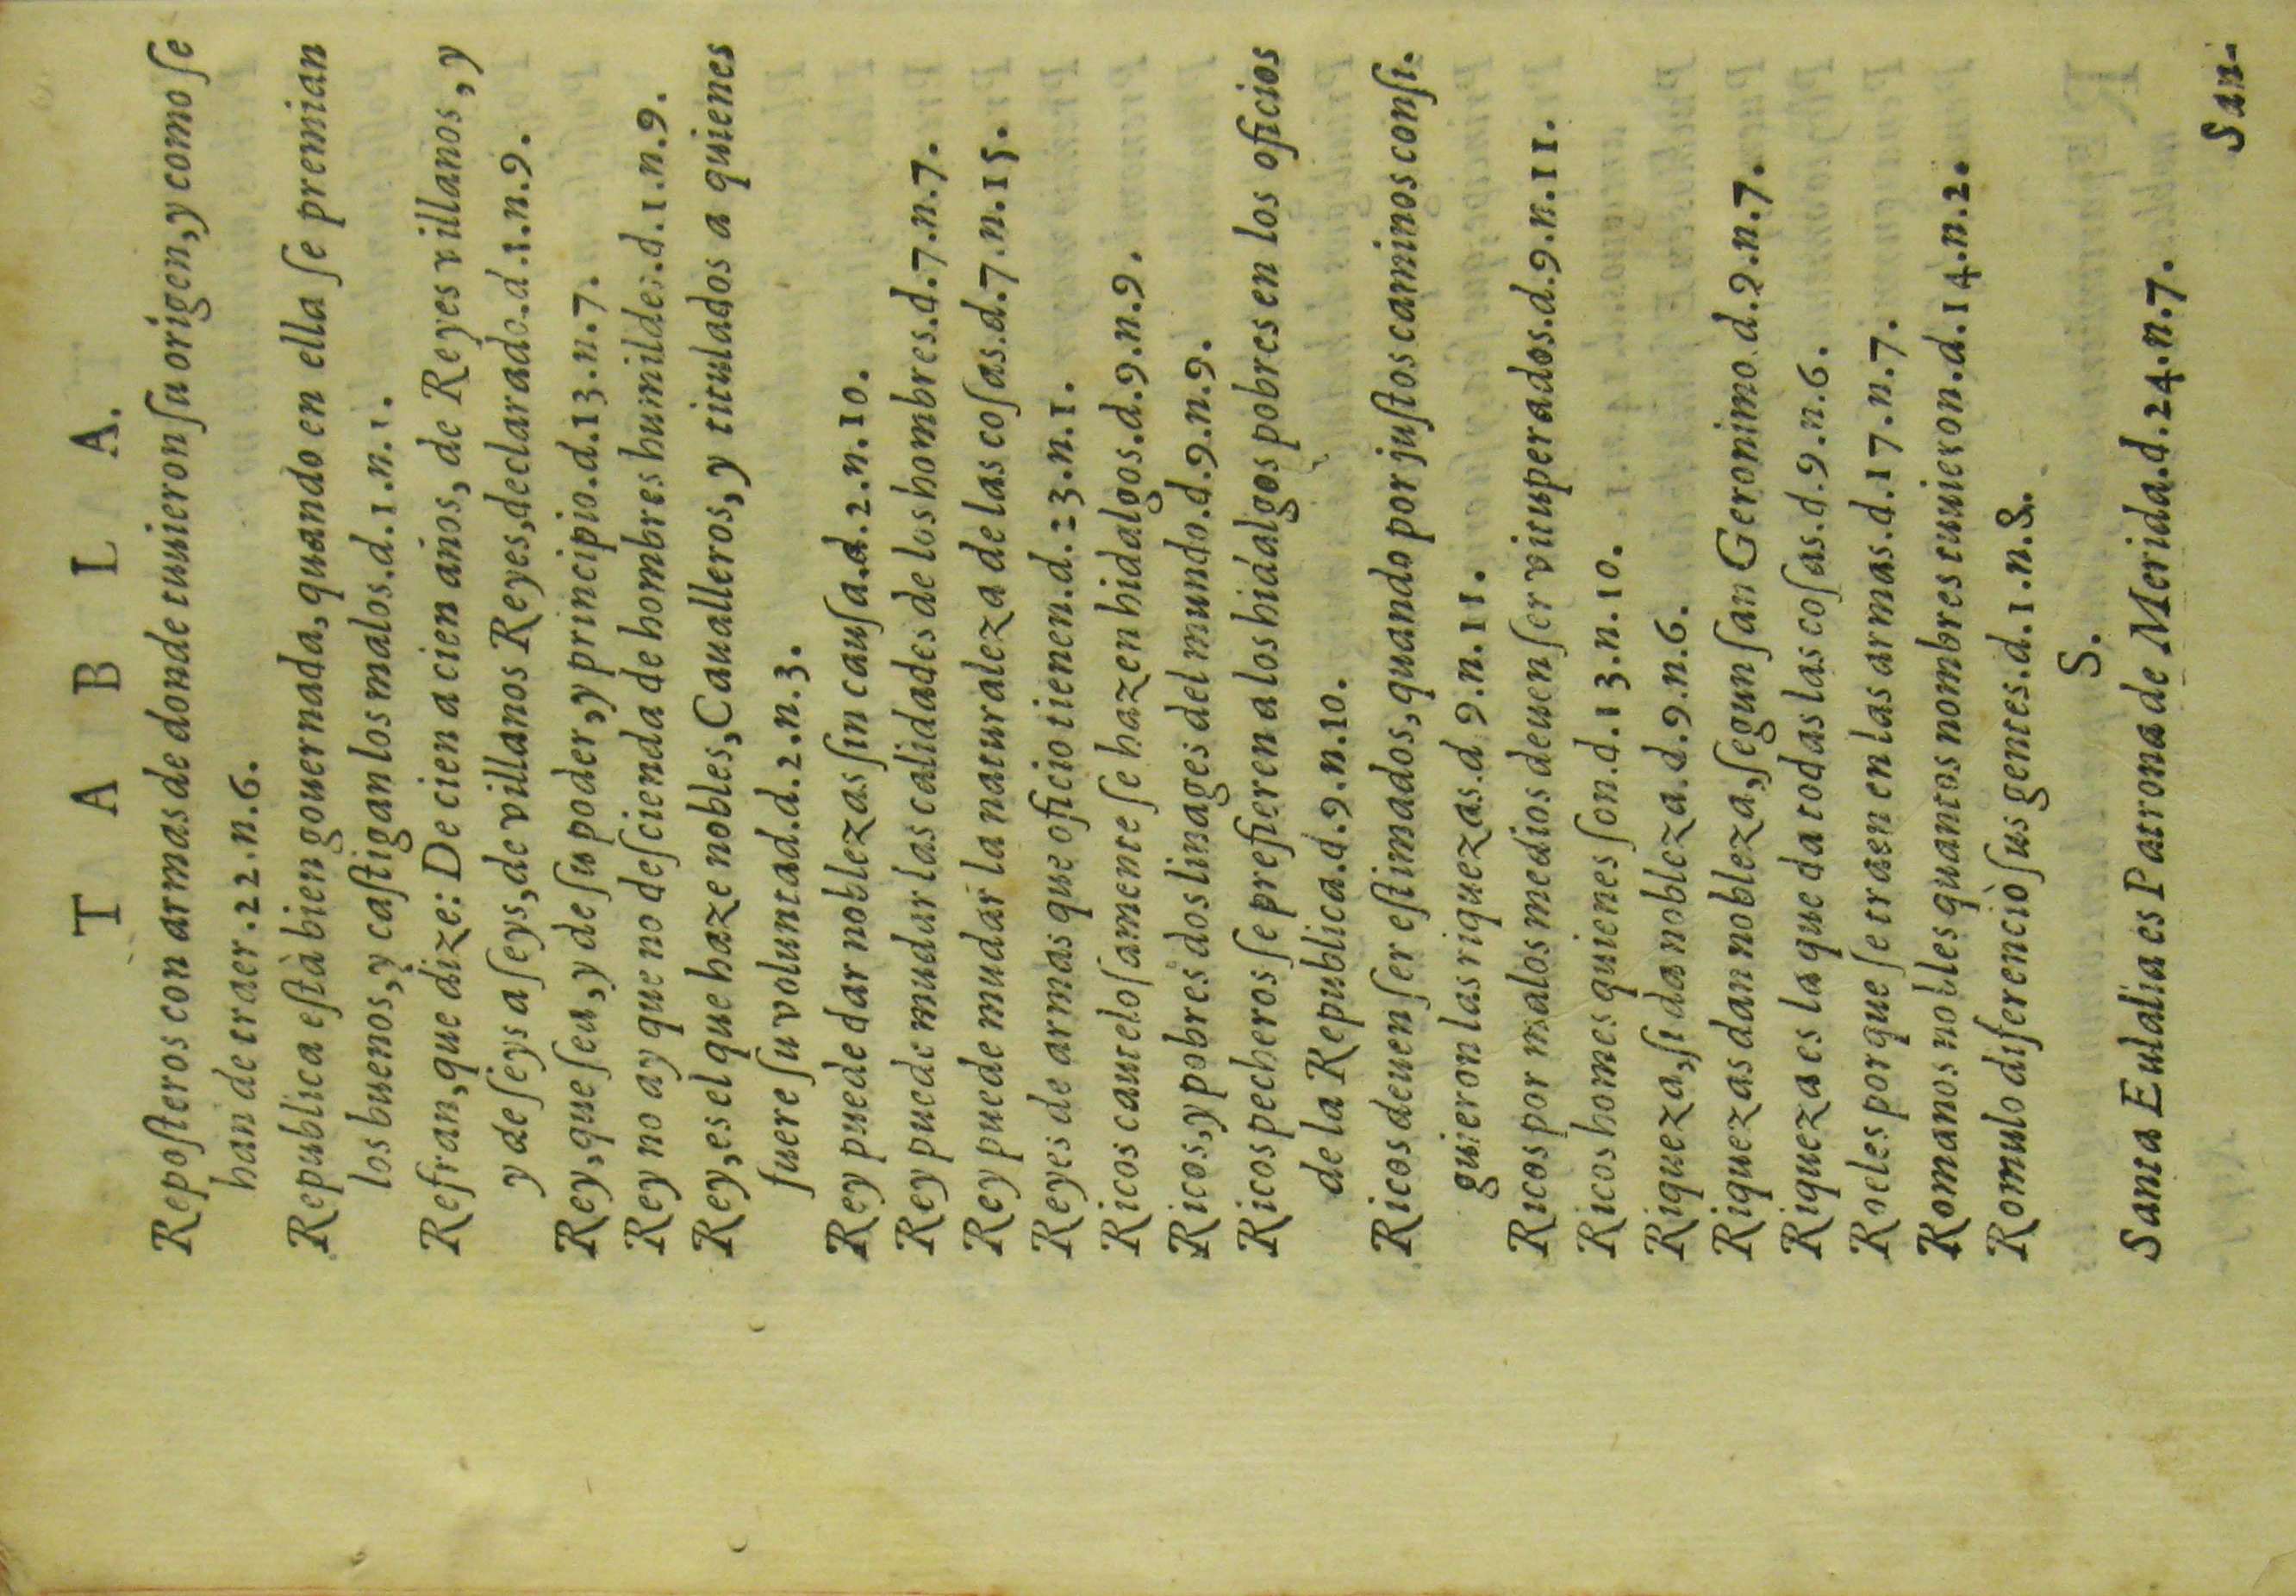 T A B L A.
Repoſteros con armas de donde tuuieron ſu origen, y como ſe
han de traer. 22. n. 6.
Republica eſtà bien gouernada, quando en ella ſe premian
los buenos, y caſtigan los malos. d. 1. n. 1.
Refran, que dize: De cien a cien años, de Reyes villanos, y
y de ſeys a ſeys, de villanos Reyes, declarado. d. 1. n. 9.
Rey, que ſea, y de ſu poder, y principio. d. 13. n. 7.
Rey no ay que no deſcienda de hombres humildes. d. 1. n. 9.
Rey, es el que haze nobles, Caualleros, y titulados a quienes
fuere ſu voluntad. d. 2. n. 3.
Rey puede dar noblezas ſin cauſa. d. 2. n. 10.
Rey puede mudar las calidades de los hombres. d. 7. n. 7.
Rey puede mudar la naturaleza de las coſas. d. 7. n. 15.
Reyes de armas que oficio tienen. d. 23. n. 1.
Ricos cauteloſamente ſe hazen hidalgos. d. 9. n. 9.
Ricos, y pobres dos linages del mundo. d. 9. n. 9.
Ricos pecheros ſe prefieren a los hidalgos pobres en los oficios
de la Republica. d. 9. n. 10.
Ricos deuen ſer eſtimados, quando por juſtos caminos conſi-
guieron las riquezas. d. 9. n. 11.
Ricos por malos medios deuen ſer vituperados. d. 9. n. 11.
Ricos homes quienes ſon. d. 13. n. 10.
Riqueza, ſi da nobleza. d. 9. n. 6.
Riquezas dan nobleza, ſegun ſan Geronimo. d. 9. n. 7.
Riqueza es la que da todas las coſas. d. 9. n. 6.
Roeles porque ſe traen en las armas. d. 17. n. 7.
Romanos nobles quantos nombres tuuieron. d. 14. n. 2.
Romulo diferenciò ſus gentes. d. 1. n. 8.
S.
Santa Eulalia es Patrona de Merida. d. 24. n. 7.
San-